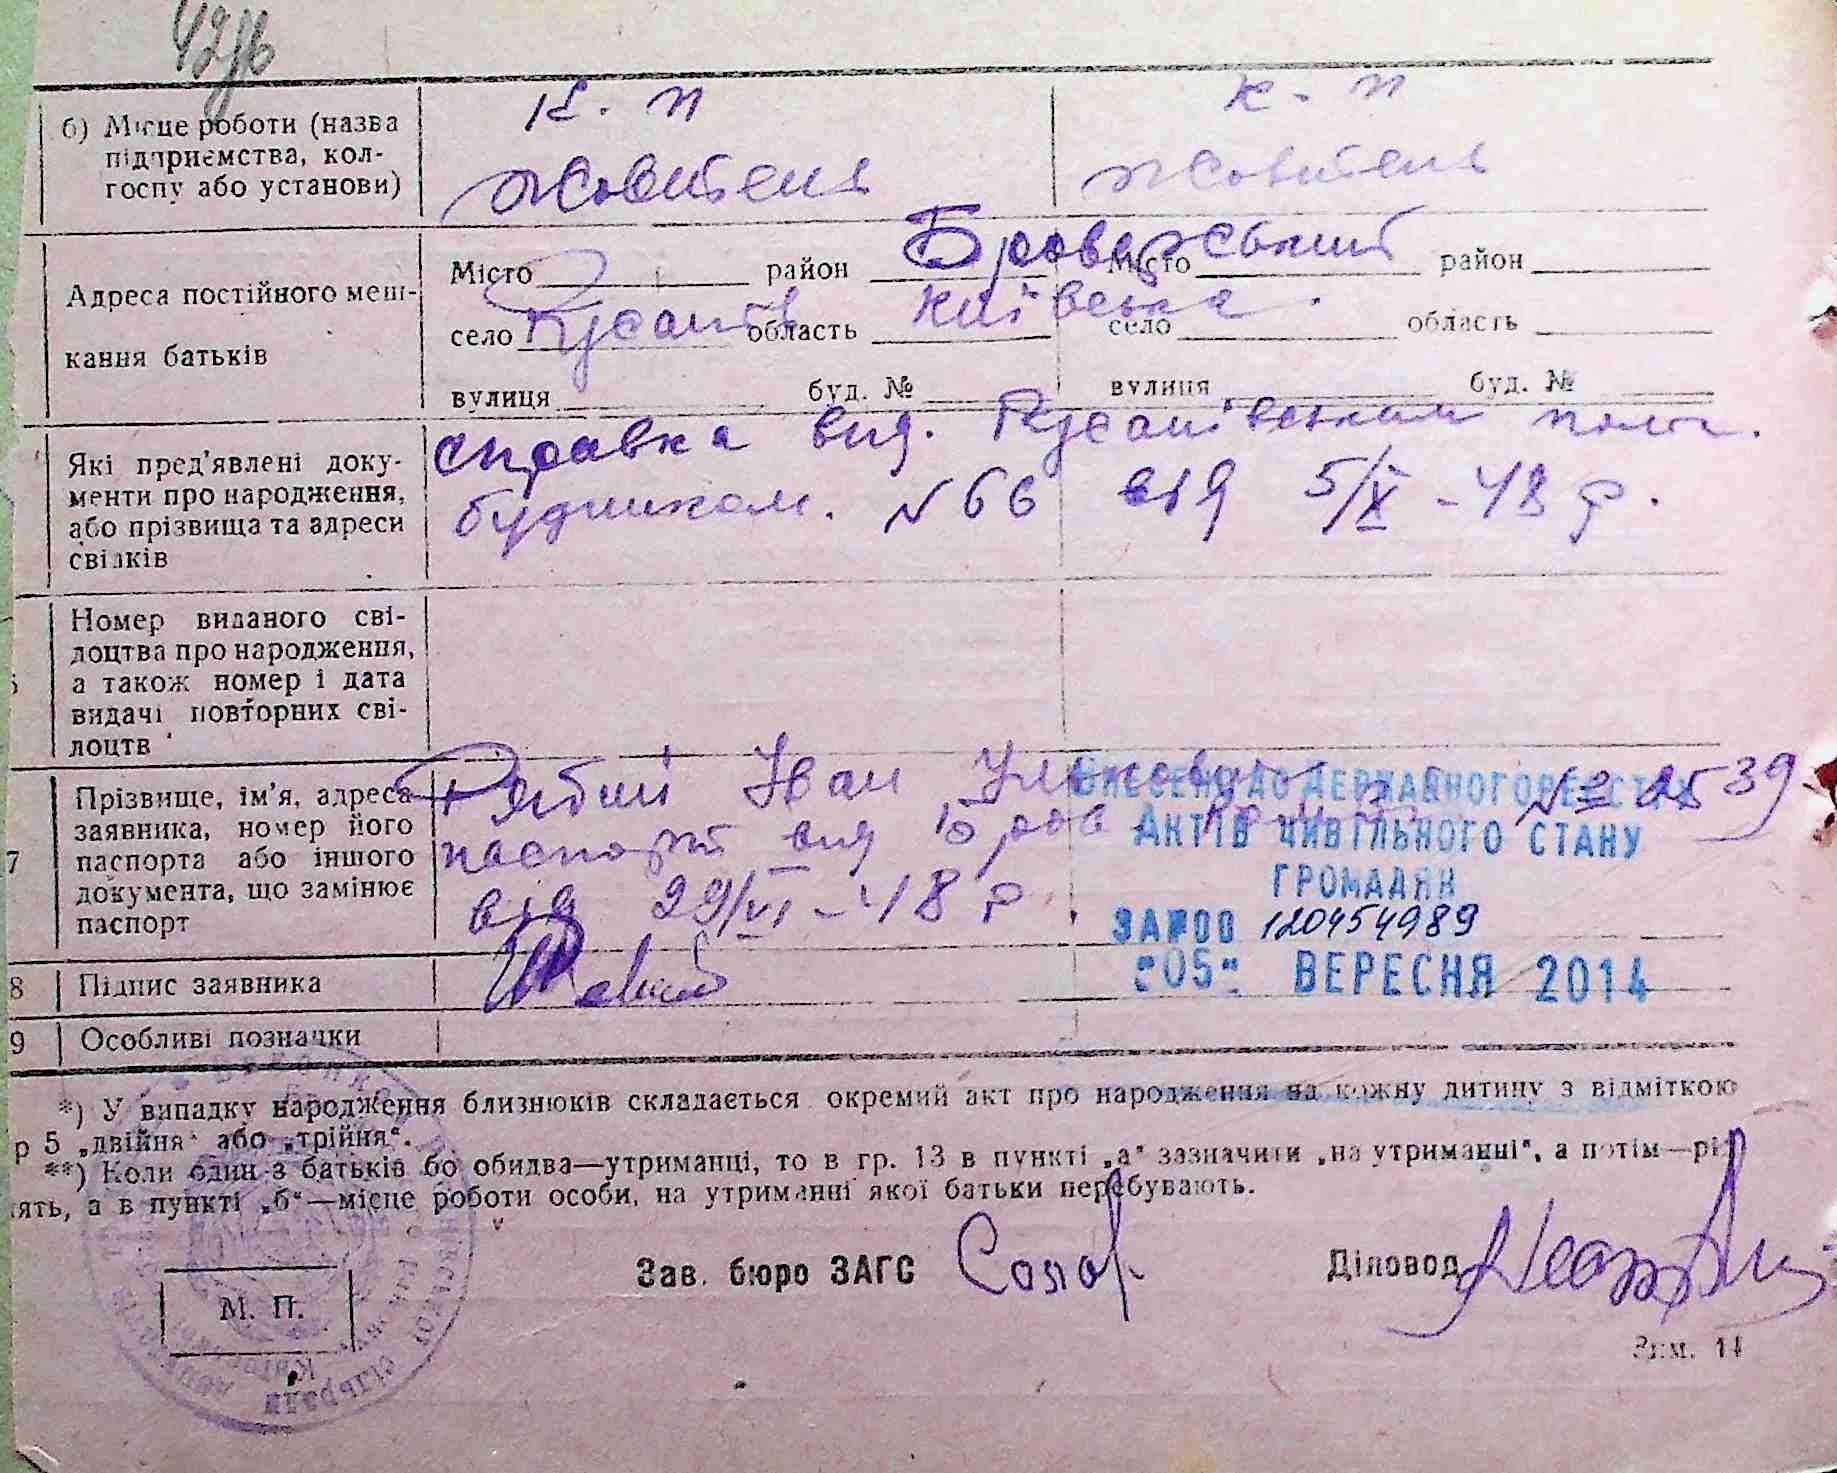 б) Місце роботи (назва
підприємства, кол-
госпу або установи)
к. п
Жовтень
к. п
Жовтень
Адреса постійного меш-
кання батьків
Місто район Броварський
село Русанів область Київська
вулиця буд. №
Місто район
село область
вулиця буд. №
Які пред'явлені доку-
менти про народження,
або прізвища та адреси
свідків
справка вид. Русанівським полог.
будинком. № 66 від 5/X - 48 р.
Номер виданого сві-
доцтва про народження,
а також номер і дата
видачі повторних сві-
доцтв
7
Прізвище, ім'я, адреса
заявника, номер його
паспорта або іншого
документа, що замінює
паспорт
Рябий Іван № 2539
паспорт вид Бров
від 29/VI - 48 р.
ВНЕСЕНО ДО ДЕРЖАВНОГО РЕЄСТРУ
АКТІВ ЦИВІЛЬНОГО СТАНУ
ГРОМАДЯН
ЗА №00 120454989
"05" ВЕРЕСНЯ 2014
8 Підпис заявника
9 Особливі позначки
*) У випадку народження близнюків складається окремий акт про народження на кожну дитину з відміткою
р 5 „двійня" або „трійня".
**) Коли один з батьків бо обидва—утриманці, то в гр. 13 в пункті „а" зазначити „на утриманні", а потім—рі
ять, а в пункті „б"—місце роботи особи, на утриманні якої батьки перебувають.
Зав. бюро ЗАГС
Діловод
М. П.
Зам. 14